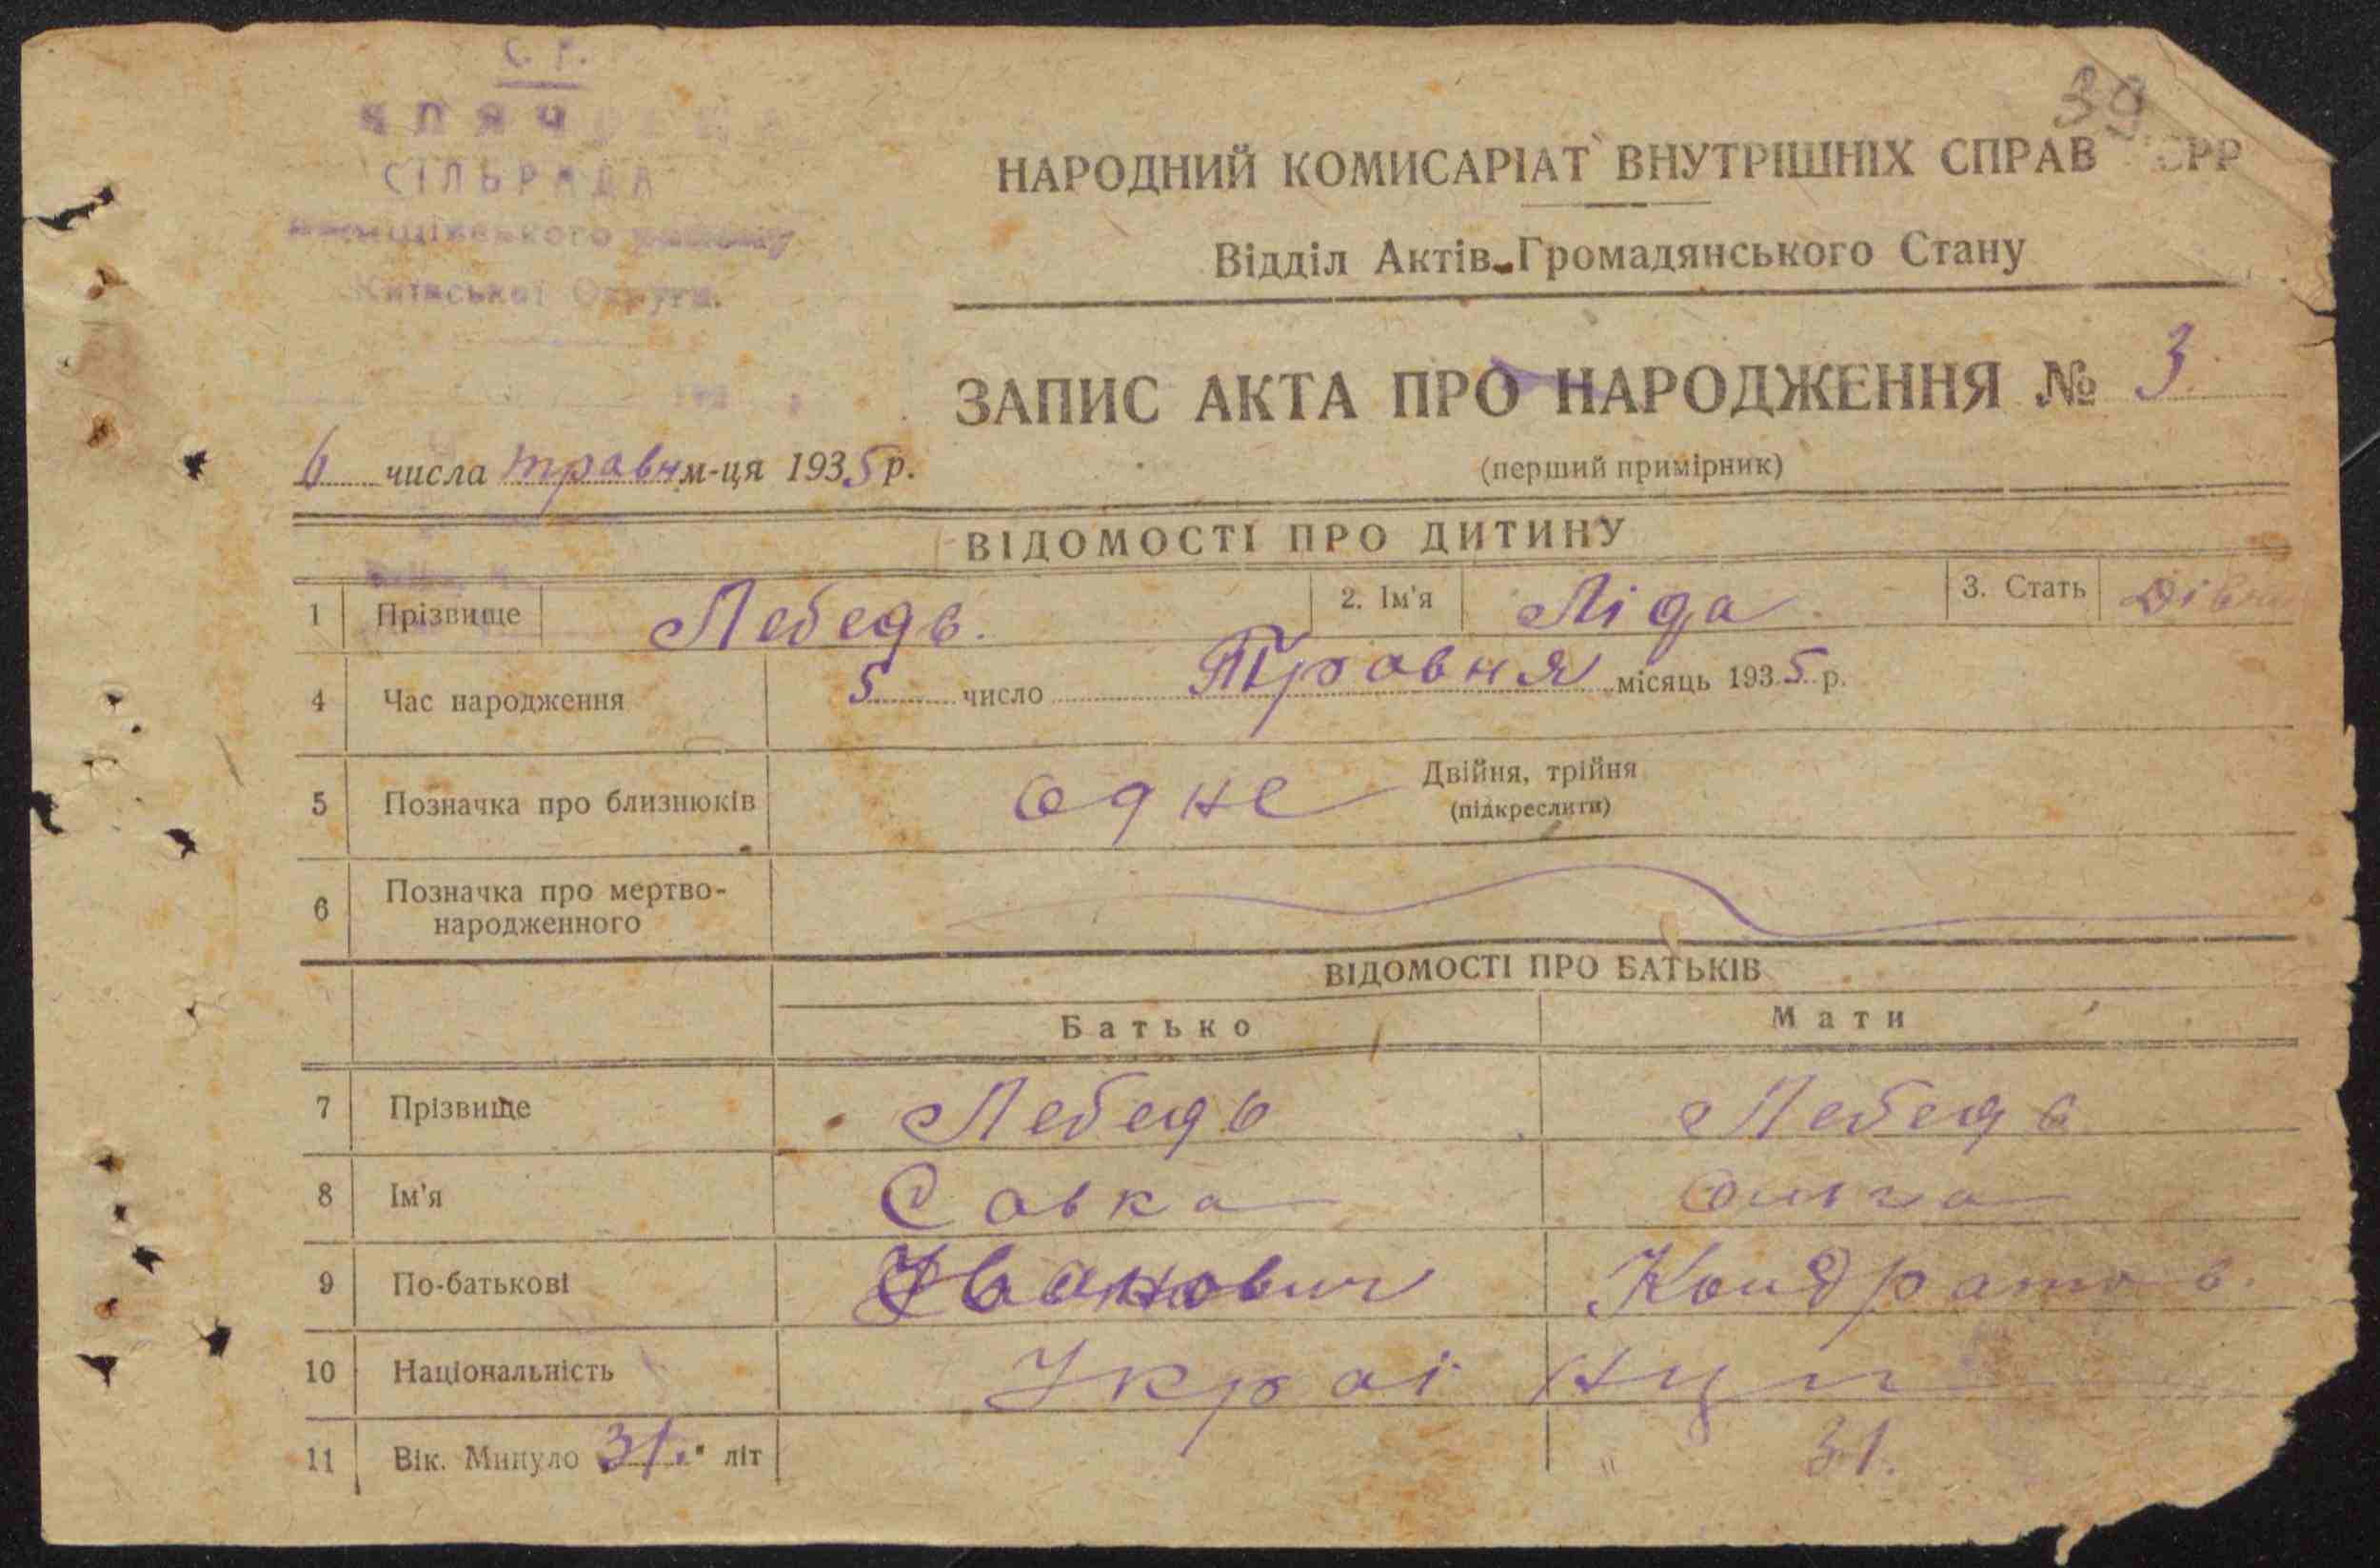 39
С. Р.
СІЛЬРАДА
Київської Округи.
НАРОДНИЙ КОМИСАРІАТ ВНУТРІШНІХ СПРАВ СРР
Відділ Актів Громадянського Стану
ЗАПИС АКТА ПРО НАРОДЖЕННЯ № 3
6 числа травн м-ця 1935 р.
(перший примірник)
ВІДОМОСТІ ПРО ДИТИНУ
1 Прізвище Лебедь. 2. Ім'я Ліда 3. Стать дівч
4 Час народження 5 число Травня місяць 1935 р.
5 Позначка про близнюків одне Двійня, трійня
(підкреслити)
6 Позначка про мертво-
народженного
ВІДОМОСТІ ПРО БАТЬКІВ
Батько Мати
7 Прізвище Лебедь Лебедь
8 Ім'я Савка Ольга
9 По-батькові Іванович Кондратов.
10 Національність Украінци
11 Вік. Минуло 31. літ " 31.